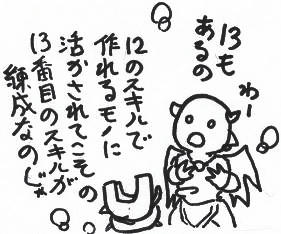 13も
あるの
わー
12のスキルで
作れるモノに
活かされてこその
13番目のスキルが
練成なのじゃ